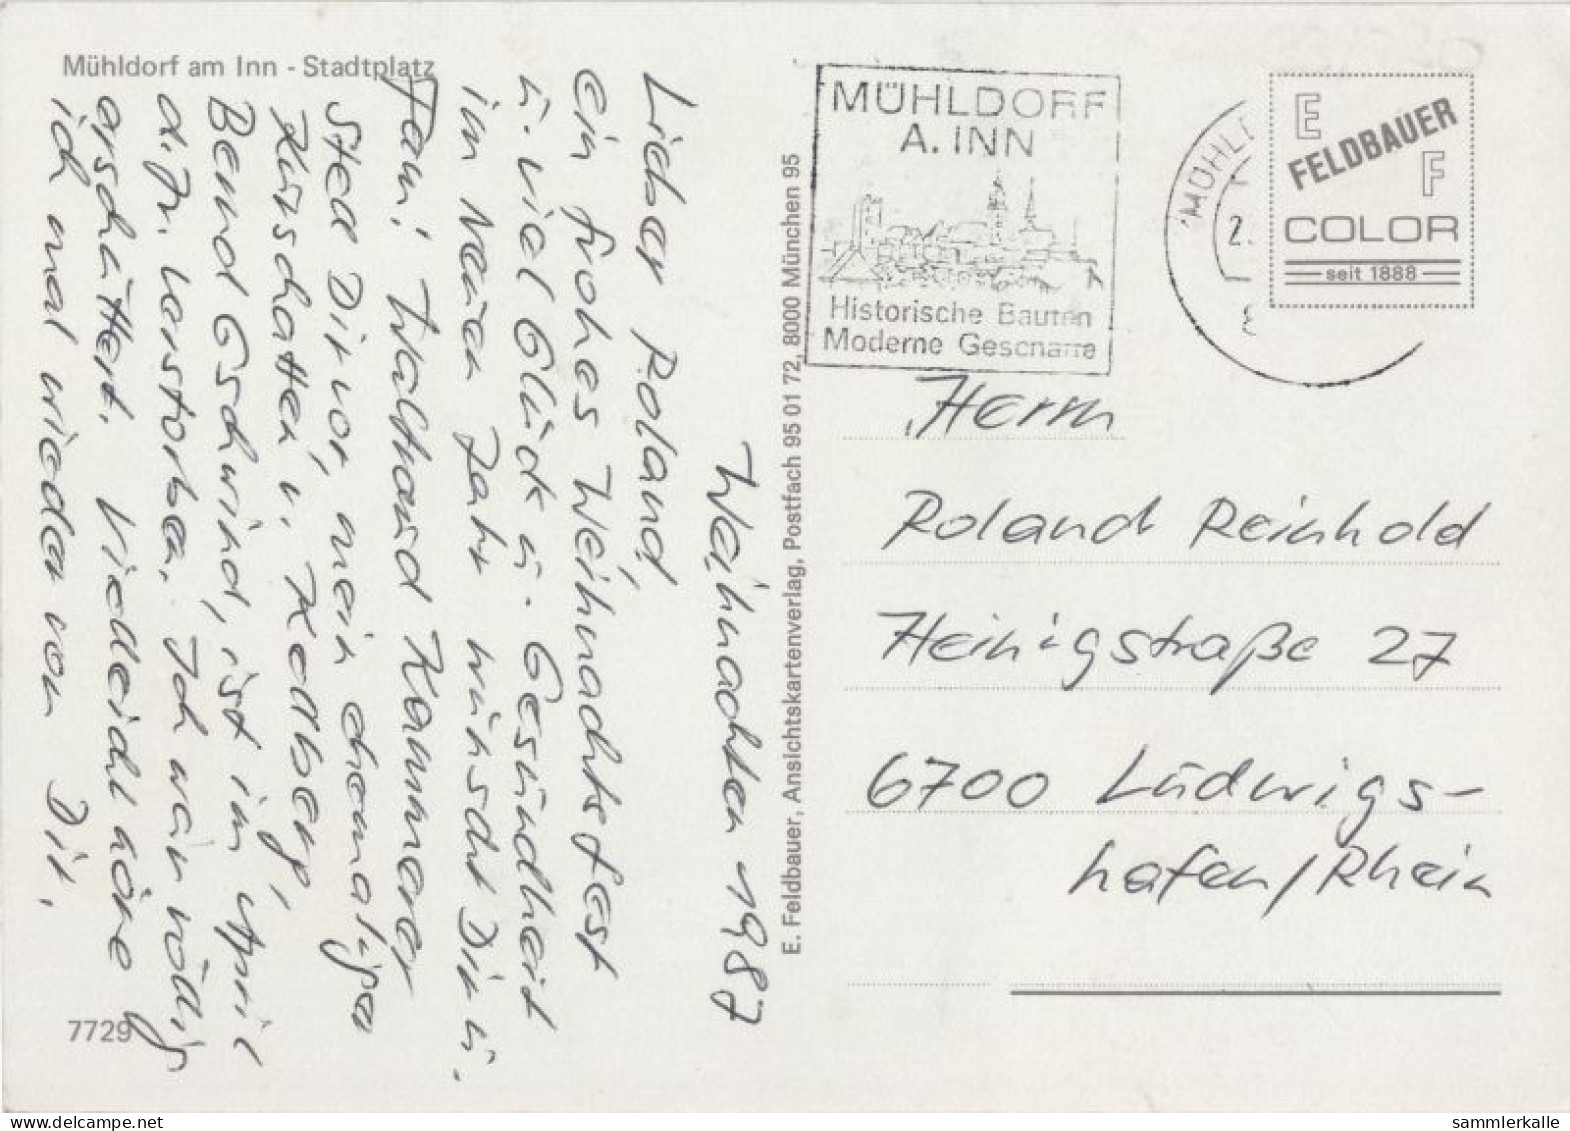 Mühldorf am Inn - Stadtplatz
Weihnachten 1987
Lieber Roland,
ein frohes Weihnachtsfest
u. viel Glück u. Gesundheit
im Neuen Jahr wünscht Dir u.
Fam. Waltraud Kammerer
Stell Dir vor, mein ehemaliger
Bernd Gschwind, ist im April
d. J. verstorben. Ich war völlig
erschüttert. Vielleicht höre
ich mal wieder von Dir.
7729
E. Feldbauer, Ansichtskartenverlag, Postfach 95 01 72, 8000 München 95
MÜHLDORF
A. INN
Historische Bauten
Moderne Geschäfte
MÜHLD
2.
8
E
FELDBAUER
F
COLOR
seit 1888
Herrn
Roland Reinhold
Heinigstraße 27
6700 Ludwigs-
hafen/Rhein
www.delcampe.net
sammlerkalle